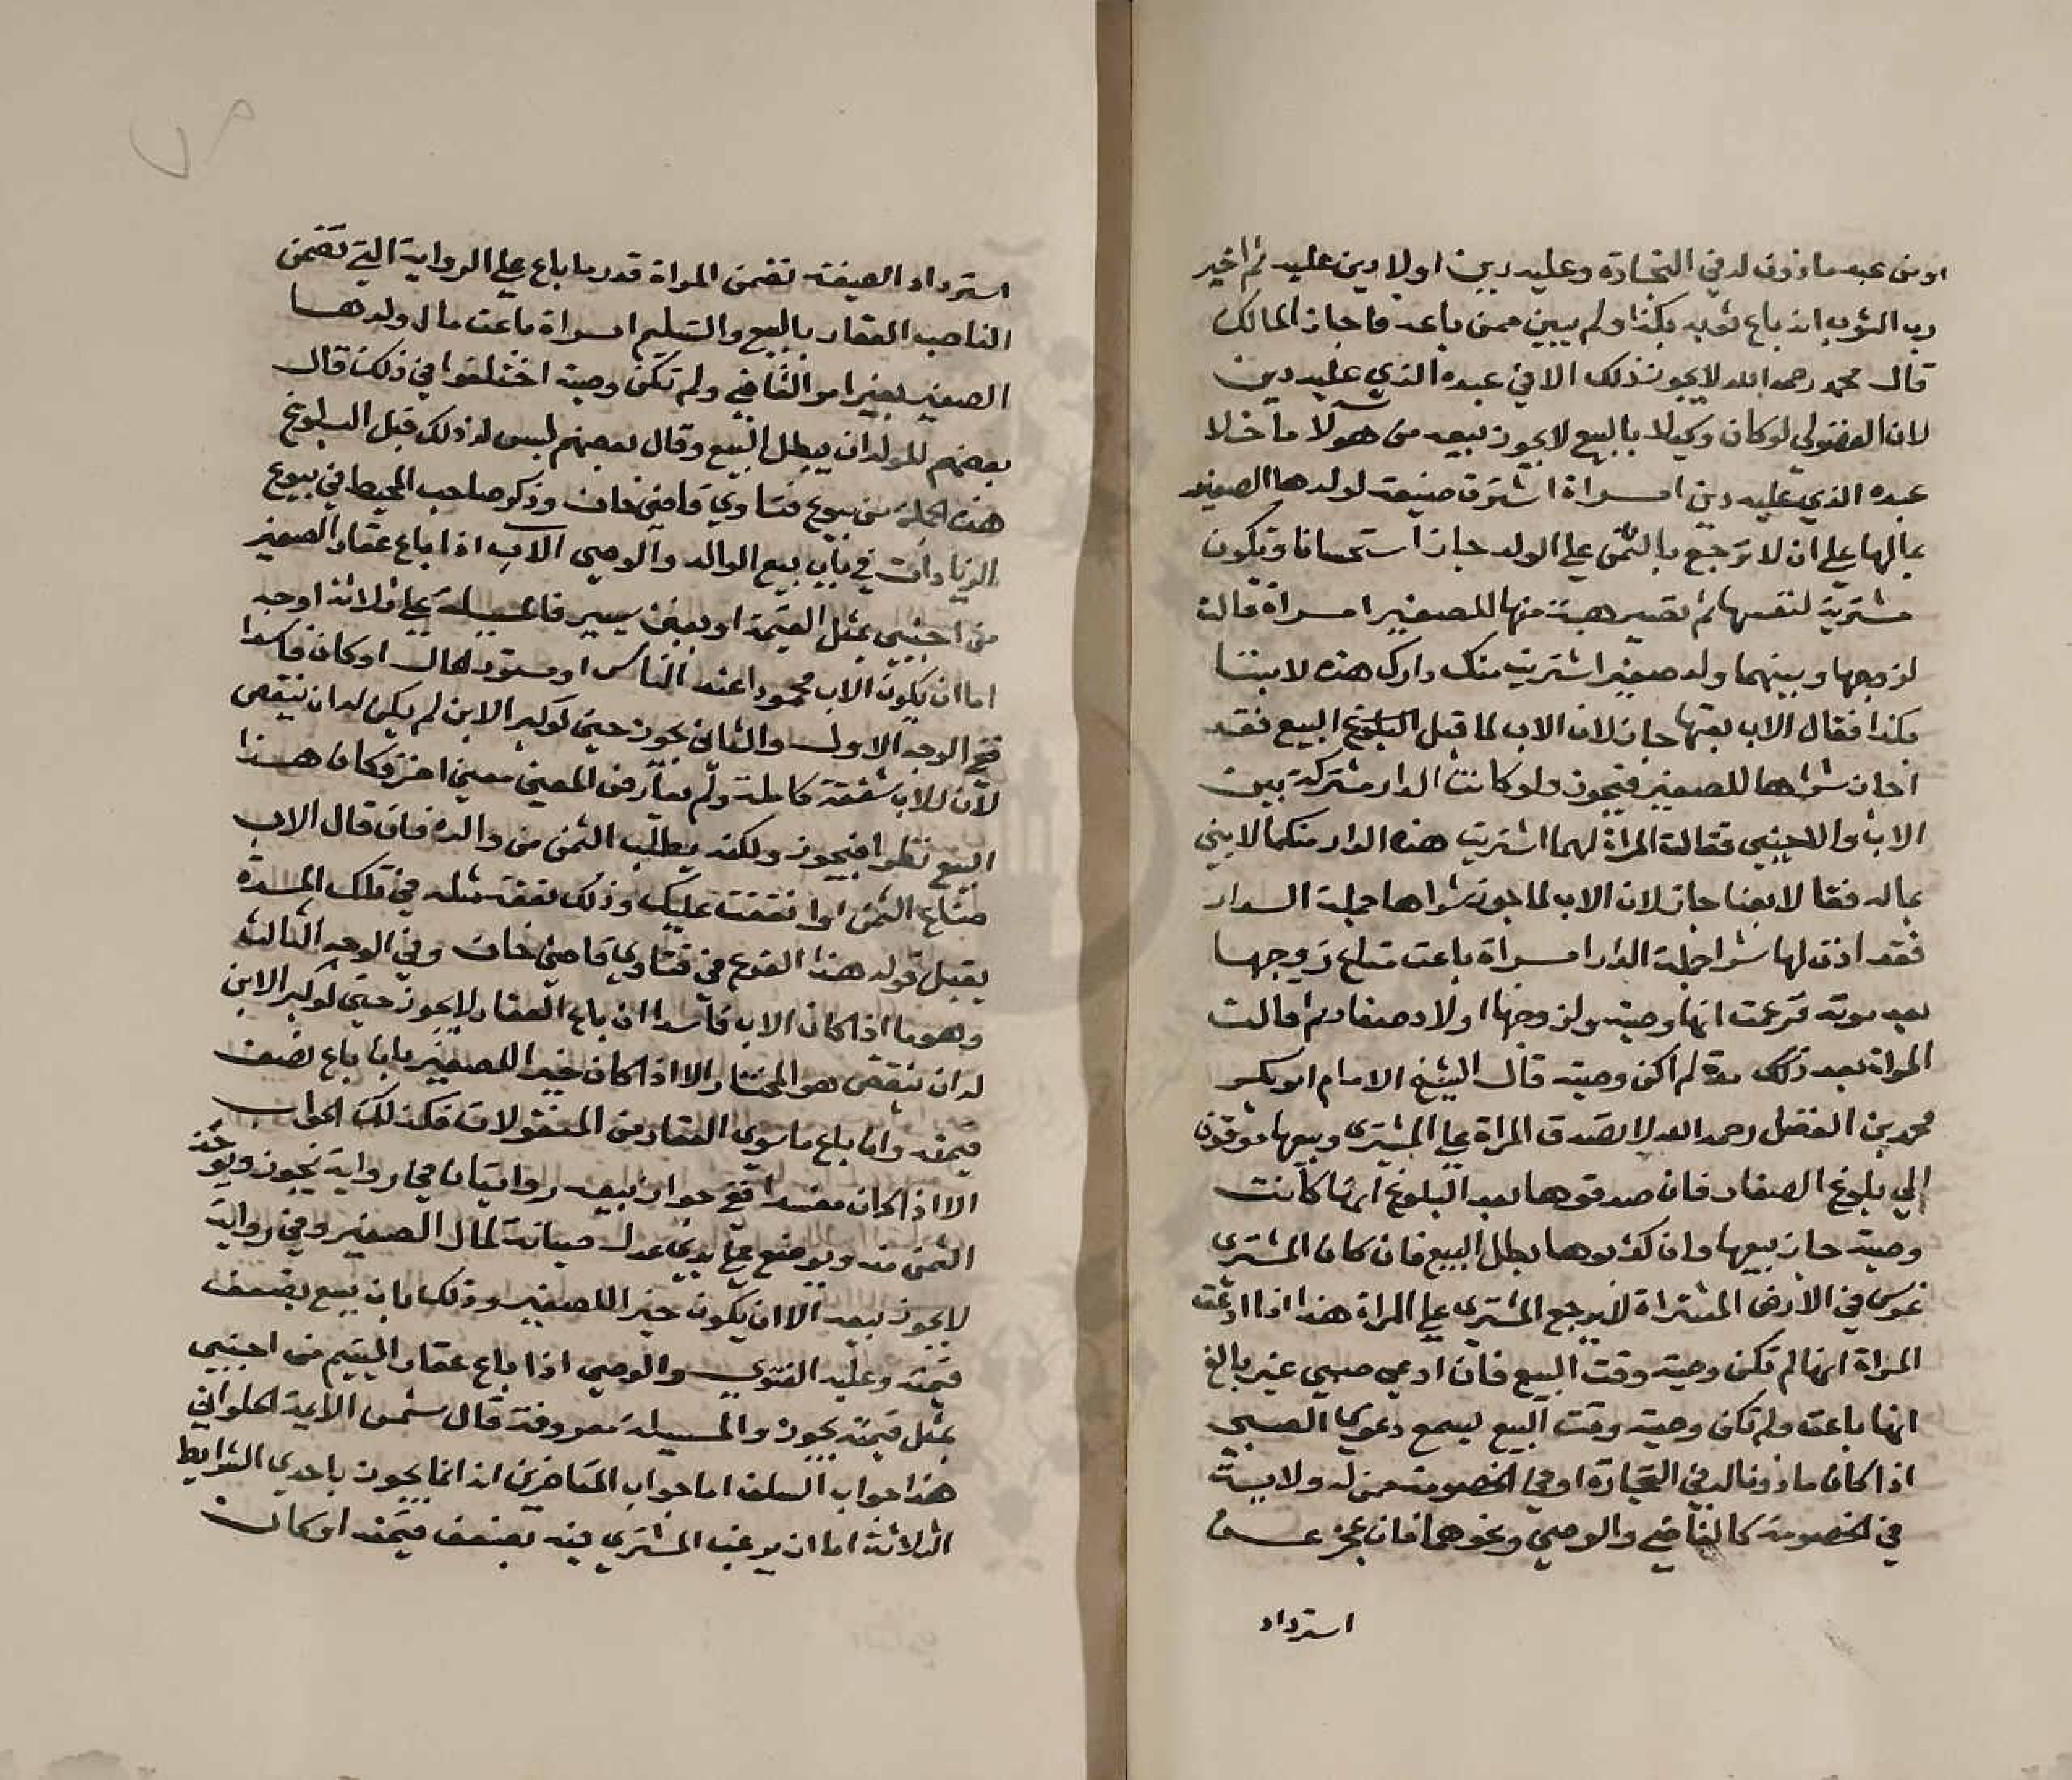 او من عبد ماذون له في التجارة وعليه دين او لا دين عليه ثم اخبر
رب الثوب انه باع ثوبه بكذا ولم يبين ممن باعه فاجاز المالك
قال محمد رحمه الله لا يجوز ذلك الا في عبده الذي عليه دين
لان الفضولي لو كان وكيلا بالبيع لا يجوز بيعه من هولا ما خلا
عبده الذي عليه دين امراة اشترت ضيعة لولدها الصغير
بمالها على ان لا ترجع بالثمن على الولد جاز استحسانا وتكون
مشترية لنفسها ثم تصير هبة منها للصغير امراة قالت
لزوجها وبينهما ولد صغير اشتريت منك دارك هذه لابننا
بكذا فقال الاب بعتها جاز لان الاب لما قبل البلوغ البيع فقد
اجاز شراها للصغير فيجوز ولو كانت الدار مشتركة بين
الاب والاجنبي فقالت المراة لهما اشتريت هذه الدار منكما لابني
بماله فقالا بعنا جاز لان الاب لما جوز شراها جملة الدار
فقد اذن لها شرا جملة الدار امراة باعت متاع زوجها
بعد موته فزعمت انها وصيته ولزوجها اولاد صغار ثم قالت
المراة بعد ذلك مدة لم اكن وصيته قال الشيخ الامام ابو بكر
محمد بن الفضل رحمه الله لا تصدق المراة على المشتري وبيعها موقوف
الي بلوغ الصغار فان صدقوها بعد البلوغ انها كانت
وصيته جاز بيعها وان كذبوها بطل البيع فان كان المشتري
غرس في الارض المشتراة لا يرجع المشتري علي المراة هذا اذا ادعت
المراة انها لم تكن وصيته وقت البيع فان ادعي صبي غير بالغ
انها باعت ولم تكن وصيته وقت البيع يسمع دعوي الصبي
اذا كان ماذونا له في التجارة او في الخصومة ممن له ولاية
في الخصومة كالقاضي والوصي ونحوهما فان عجز عن
استرداد
استرداد الضيعة تضمن المراة قدر ما باع علي الرواية التي تضمن
الغاصب العقار بالبيع والتسليم امراة باعت مال ولدها
الصغير بغير امر القاضي ولم تكن وصيته اختلفوا في ذلك قال
بعضهم للولد ان يبطل البيع وقال بعضهم ليس له ذلك قبل البلوغ
هذه الجملة من بيوع فتاوي قاضي خان وذكر صاحب المحيط في بيوع
الزيادات في باب بيع الوالد والوصي الاب اذا باع عقار الصغير
من اجنبي بمثل القيمة او بغبن يسير فالمسيلة علي ثلاثة اوجه
اما ان يكون الاب محمودا عند الناس او مستور الحال او كان فاسدا
ففي الوجه الاول والثاني يجوز حتى لو كبر الابن لم يكن له ان ينقض
لان للاب شفقة كاملة ولم يعارض المعين معني اخر فكان هذا
البيع نظرا فيجوز ولكنه يطلب الثمن من والده فان قال الاب
ضاع الثمن او انفقت عليك وذلك نفقة مثله في تلك المدة
يقبل قوله هذا الفرع في فتاوي قاضي خان وفي الوجه الثالث
وهو ما اذا كان الاب فاسدا ان باع العقار لا يجوز حتى لو كبر الابن
له ان ينقض هو المختار الا اذا كان خيرا للصغير بان باع بضعف
قيمته وان باع ما سوي العقار من المنقولات فكذلك الجواب
الا اذا كان مفسدا ففي جواز بيعه روايتان في رواية يجوز ويوخذ
الثمن منه ويوضع علي يدي عدل صيانة لمال الصغير وفي رواية
لا يجوز بيعه الا ان يكون خيرا للصغير وذلك بان يبيع بضعف
قيمته وعليه الفتوي والوصي اذا باع عقار اليتيم من اجنبي
بمثل قيمته يجوز والمسيلة معروفة قال شمس الايمة الحلواني
هذا جواب السلف اما جواب المتاخرين انه انما يجوز باحدي الشرايط
الثلاثة اما ان يرغب المشتري فيه بضعف قيمته او كان